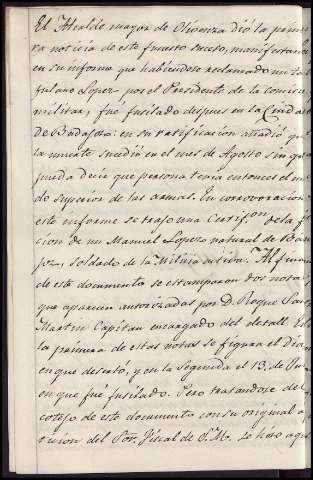 El Alcalde mayor de Olivenza dió la prime
ra noticia de este funesto suceso, manifestando
en su informe que habiendose reclamado un tal
fulano Lopez por el Presidente de la comision
militar, fué fusilado despues en la Ciudad
de Badajoz: en su ratificacion añadió que
la muerte sucedió en el mes de Agosto sin que
pueda decir que persona tenia entonces el man
do superior de las armas. En corrovoracion
este informe se trajo una Certifon. de la f
cion de un Manuel Lopez natural de Bar
, soldado de la Milicia activa. Al fin
de este documento se estamparon dos notas
que aparecen autorizadas por D. Roque San
Martin Capitan encargado del detall. En
la primera de estas notas se figura el dia
en que desertó, y en la segunda el 13, de
en que fué fusilado. Pero tratandose del
cotejo de este documento con su original a
ticion del Sor. Fiscal de S. M. se hizo aqui